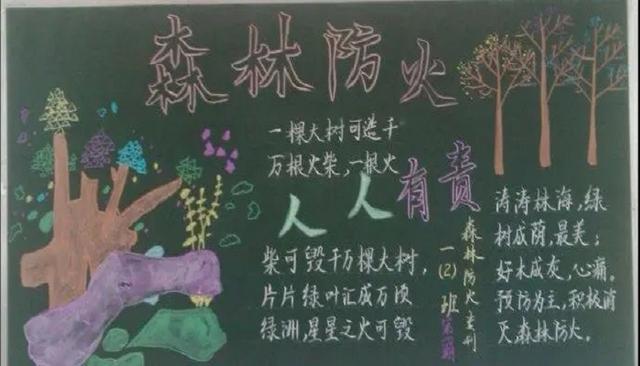 森林防火
一棵大树可造千
万根火柴,一根火
人人有责
柴可毁千万棵大树,
片片绿叶汇成万顷
绿洲,星星之火可毁
森林防火专刊
一(2)班第一期
涛涛林海,绿
树成荫,最美;
好木成灰,心痛。
预防为主,积极消
灭森林防火。